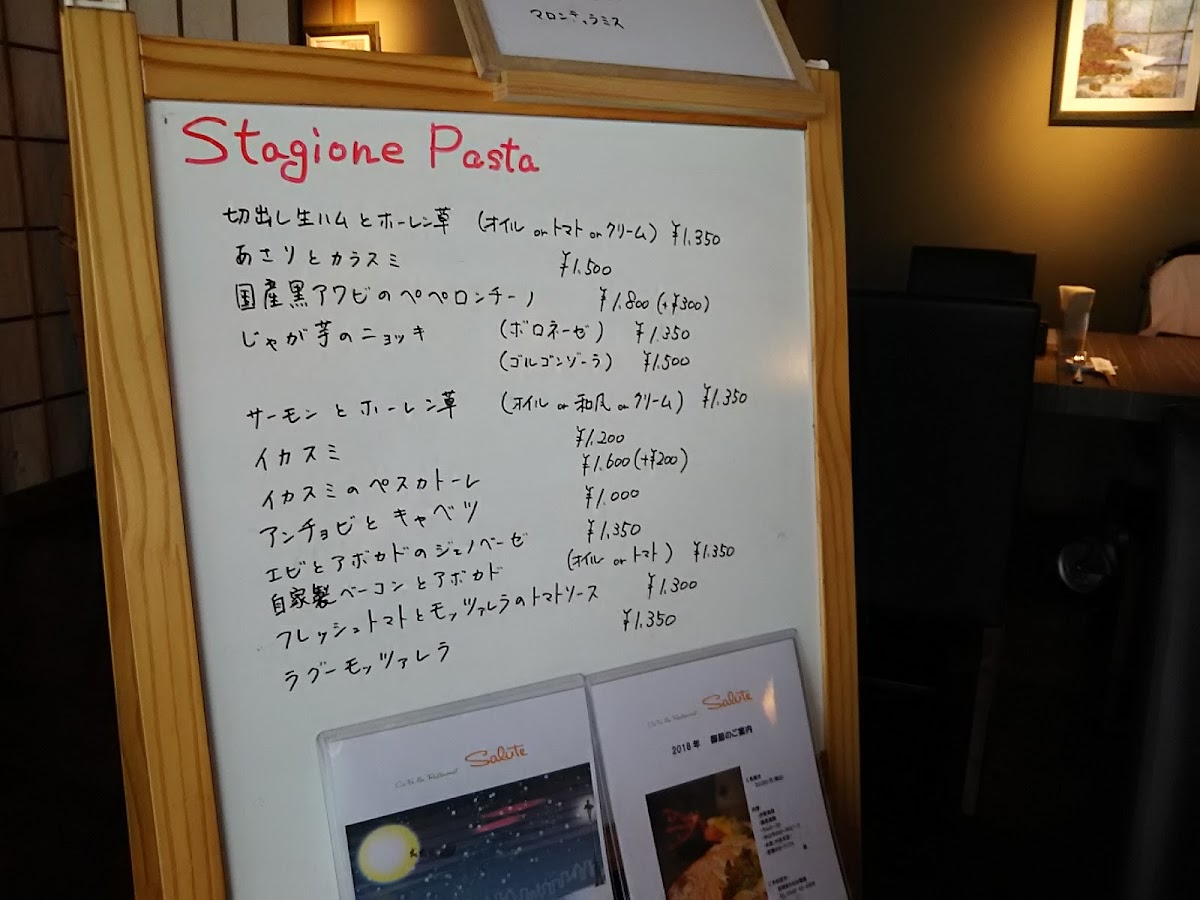 マロンティラミス
Stagione Pasta
切出し生ハムとホーレン草 (オイル or トマト or クリーム) ¥1.350
あさりとカラスミ ¥1.500
国産黒アワビのペペロンチーノ ¥1.800 (+¥300)
じゃが芋のニョッキ (ボロネーゼ) ¥1.350
(ゴルゴンゾーラ) ¥1.500
サーモンとホーレン草 (オイル or 和風 or クリーム) ¥1.350
イカスミ ¥1.200
イカスミのペスカトーレ ¥1.600 (+¥200)
アンチョビとキャベツ ¥1.000
エビとアボカドのジェノベーゼ ¥1.350
自家製ベーコンとアボカド (オイル or トマト) ¥1.350
フレッシュトマトとモッツァレラのトマトソース ¥1.300
ラグーモッツァレラ ¥1.350
Salute
Salute
2018年
のご案内